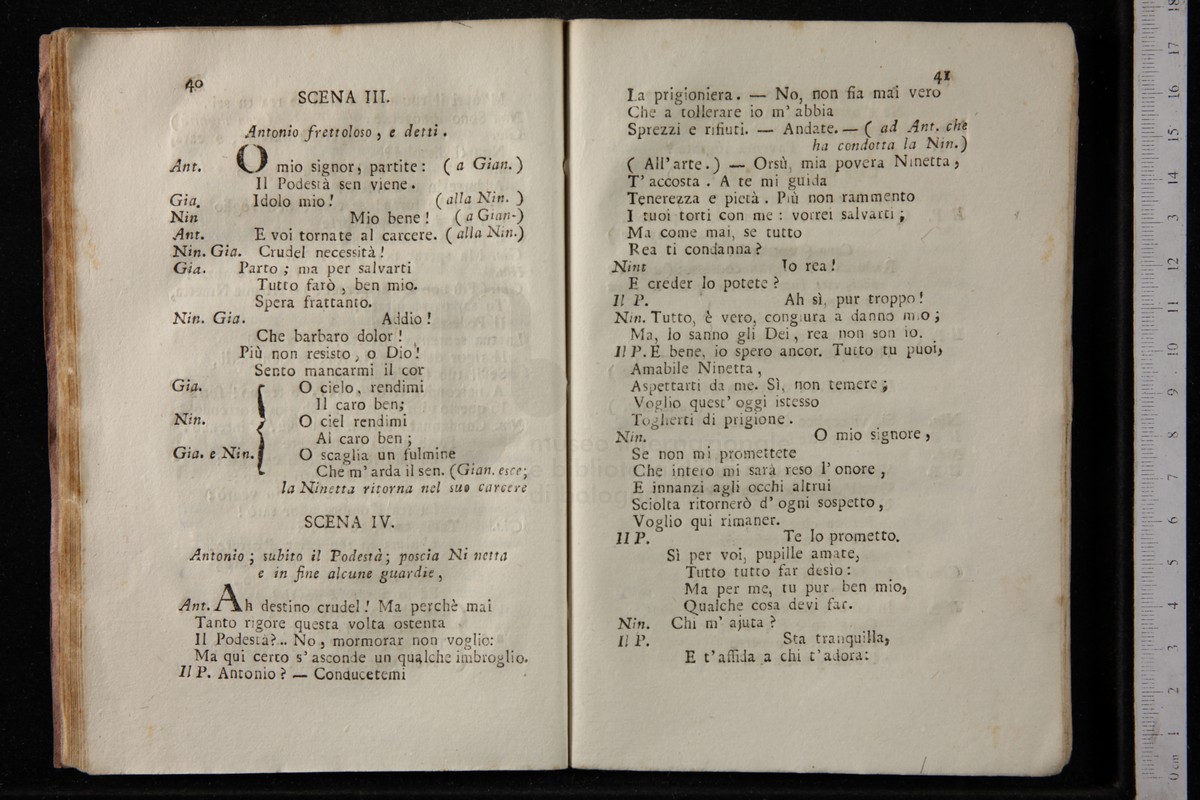 40
SCENA III.
Antonio frettoloso, e detti.
Ant. O mio signor, partite: (a Gian.)
Il Podestà sen viene.
Gia. Idolo mio! (alla Nin. )
Nin Mio bene! (a Gian-)
Ant. E voi tornate al carcere. (alla Nin.)
Nin. Gia. Crudel necessità!
Gia. Parto; ma per salvarti
Tutto farò, ben mio.
Spera frattanto.
Nin. Gia. Addio!
Che barbaro dolor!
Più non resisto, o Dio!
Sento mancarmi il cor
Gia. O cielo, rendimi
Il caro ben;
Nin. O ciel rendimi
Al caro ben;
Gia. e Nin. O scaglia un fulmine
Che m'arda il sen. (Gian. esce;
la Ninetta ritorna nel suo carcere
SCENA IV.
Antonio; subito il Podestà; poscia Ni netta
e in fine alcune guardie,
Ant. Ah destino crudel! Ma perchè mai
Tanto rigore questa volta ostenta
Il Podestà?.. No, mormorar non voglio:
Ma qui certo s'asconde un qualche imbroglio.
Il P. Antonio? — Conducetemi
41
La prigioniera. — No, non fia mai vero
Che a tollerare io m'abbia
Sprezzi e rifiuti. — Andate. — ( ad Ant. che
ha condotta la Nin.)
( All'arte.) — Orsù, mia povera Ninetta,
T'accosta. A te mi guida
Tenerezza e pietà. Più non rammento
I tuoi torti con me: vorrei salvarti;
Ma come mai, se tutto
Rea ti condanna?
Nint Io rea!
E creder lo potete?
Il P. Ah sì, pur troppo!
Nin. Tutto, è vero, congiura a danno mio;
Ma, lo sanno gli Dei, rea non son io.
Il P. E bene, io spero ancor. Tutto tu puoi,
Amabile Ninetta,
Aspettarti da me. Sì, non temere;
Voglio quest'oggi istesso
Toglierti di prigione.
Nin. O mio signore,
Se non mi promettete
Che intero mi sarà reso l'onore,
E innanzi agli occhi altrui
Sciolta ritornerò d'ogni sospetto,
Voglio qui rimaner.
Il P. Te lo prometto.
Sì per voi, pupille amate,
Tutto tutto far desio:
Ma per me, tu pur ben mio,
Qualche cosa devi far.
Nin. Chi m'ajuta?
Il P. Sta tranquilla,
E t'affida a chi t'adora: